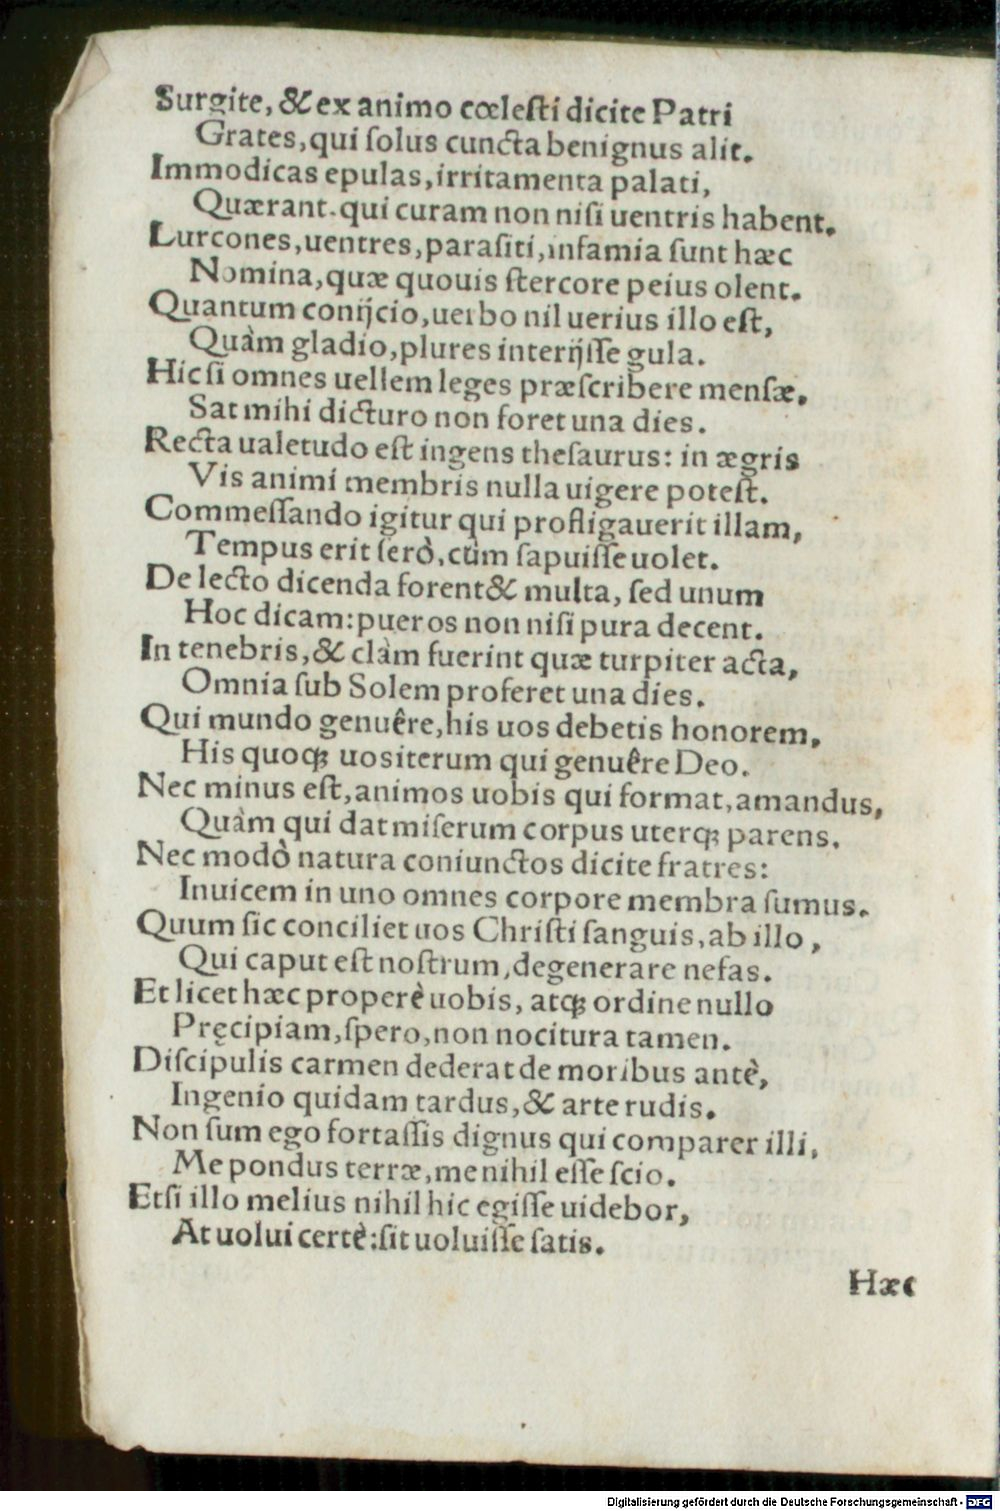 Surgite, & ex animo cœleſti dicite Patri
Grates, qui ſolus cuncta benignus alit.
Immodicas epulas, irritamenta palati,
Quærant. qui curam non niſi uentris habent.
Lurcones, uentres, paraſiti, infamia ſunt hæc
Nomina, quæ quouis ſtercore peius olent.
Quantum conijcio, uerbo nil uerius illo eſt,
Quàm gladio, plures interijſſe gula.
Hic ſi omnes uellem leges præſcribere menſæ,
Sat mihi dicturo non foret una dies.
Recta ualetudo eſt ingens theſaurus: in ægris
Vis animi membris nulla uigere poteſt.
Commeſſando igitur qui profligauerit illam,
Tempus erit ſerò, cùm ſapuiſſe uolet.
De lecto dicenda forent & multa, ſed unum
Hoc dicam: pueros non niſi pura decent.
In tenebris, & clàm fuerint quæ turpiter acta,
Omnia ſub Solem proferet una dies.
Qui mundo genuêre, his uos debetis honorem,
His quoqꝫ uos iterum qui genuêre Deo.
Nec minus eſt, animos uobis qui format, amandus,
Quàm qui dat miſerum corpus uterqꝫ parens.
Nec modò natura coniunctos dicite fratres:
Inuicem in uno omnes corpore membra ſumus.
Quum ſic conciliet uos Chriſti ſanguis, ab illo,
Qui caput eſt noſtrum, degenerare nefas.
Et licet hæc properè uobis, atqꝫ ordine nullo
Pręcipiam, ſpero, non nocitura tamen.
Diſcipulis carmen dederat de moribus antè,
Ingenio quidam tardus, & arte rudis.
Non ſum ego fortaſſis dignus qui comparer illi,
Me pondus terræ, me nihil eſſe ſcio.
Etſi illo melius nihil hic egiſſe uidebor,
At uolui certè: ſit uoluiſſe ſatis.
Hæc
Digitalisierung gefördert durch die Deutsche Forschungsgemeinschaft - DFG